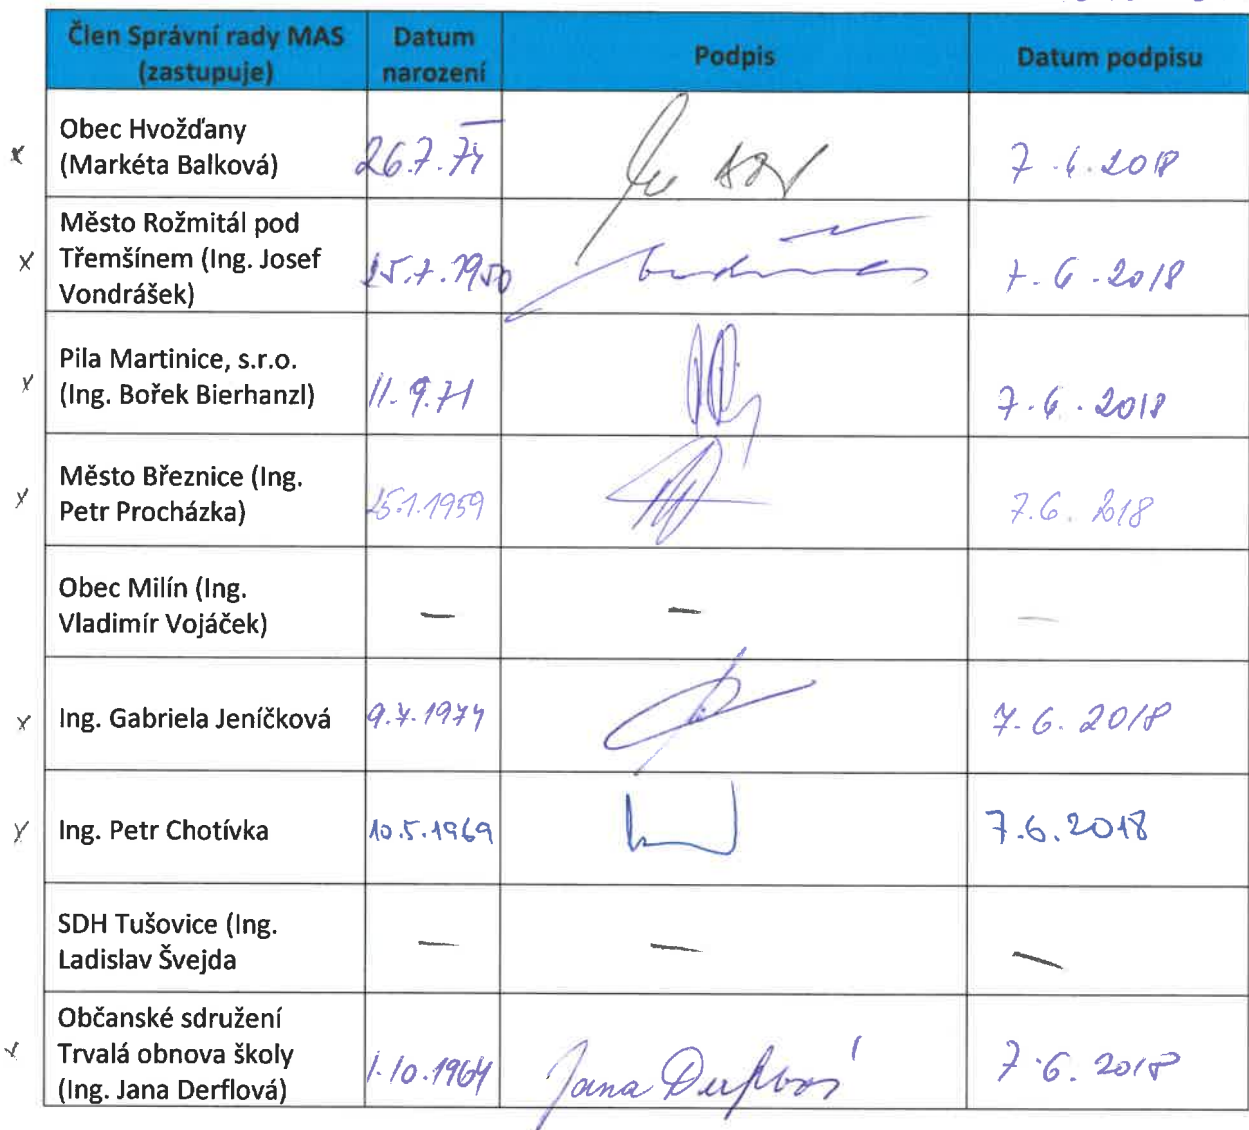 Člen Správní rady MAS (zastupuje) Datum narození Podpis Datum podpisu
x Obec Hvožďany (Markéta Balková) 26.7.74 7.6.2018
x Město Rožmitál pod Třemšínem (Ing. Josef Vondrášek) 7.6.2018
x Pila Martinice, s.r.o. (Ing. Bořek Bierhanzl) 11.9.71 7.6.2018
x Město Březnice (Ing. Petr Procházka) 25.1.1959 7.6.2018
Obec Milín (Ing. Vladimír Vojáček) — — —
x Ing. Gabriela Jeníčková 9.7.1974 7.6.2018
x Ing. Petr Chotívka 10.5.1969 7.6.2018
SDH Tušovice (Ing. Ladislav Švejda — — —
x Občanské sdružení Trvalá obnova školy (Ing. Jana Derflová) 1.10.1964 Jana Derflová 7.6.2018